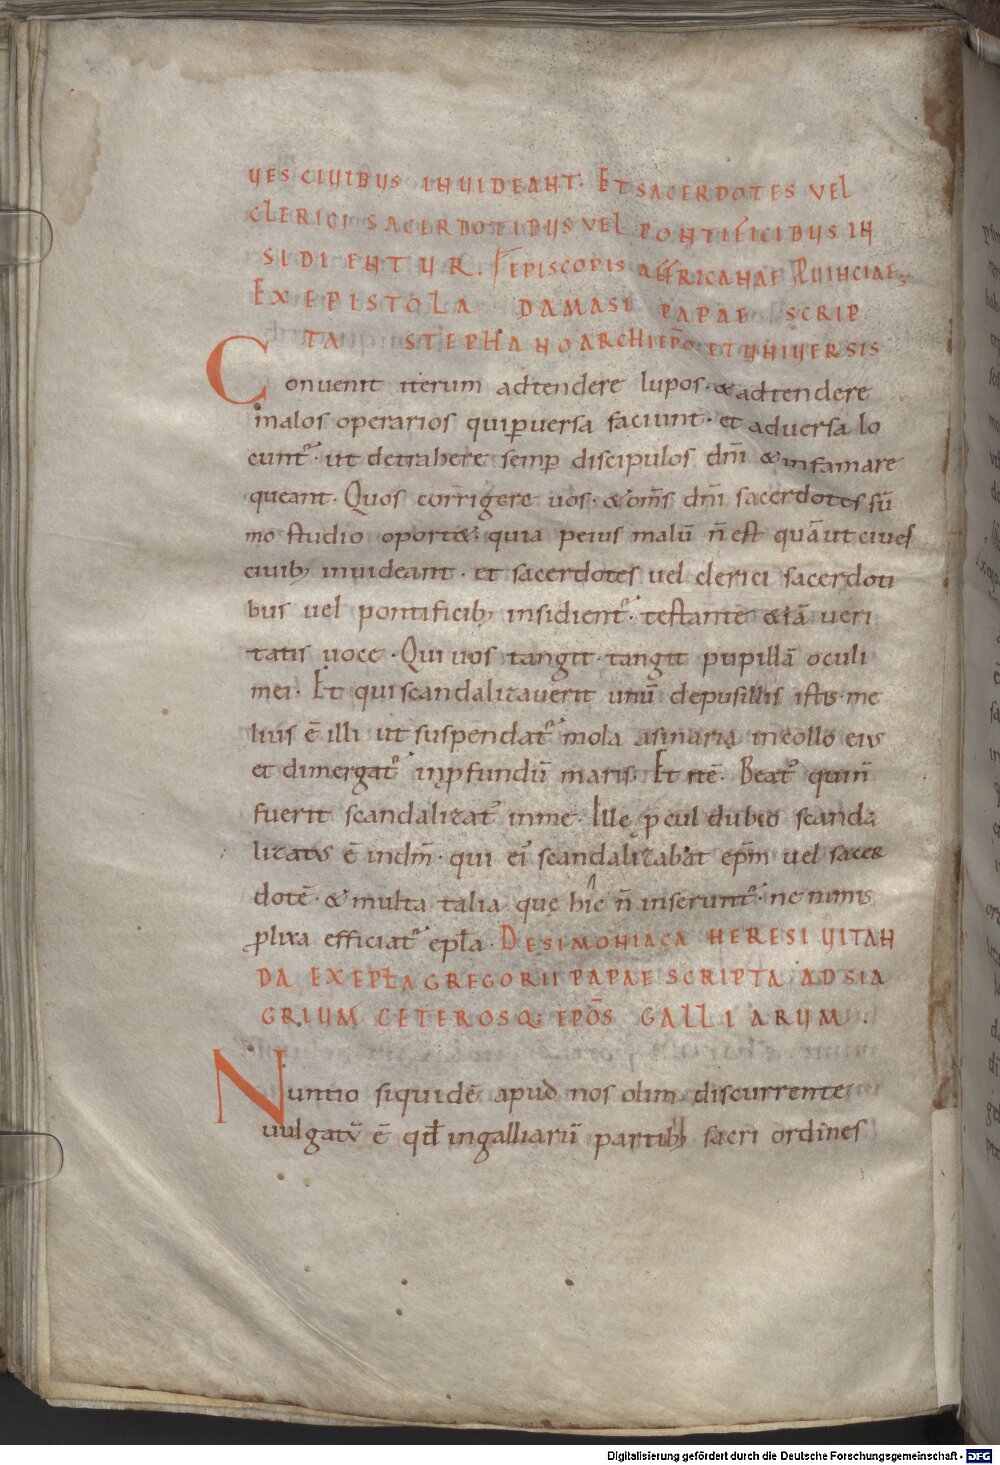 UES CIUIBUS INUIDEANT. ET SACERDOTES VEL
CLERICI SACERDOTIBUS VEL PONTIFICIBUS IN
SIDIENTUR.
EX EPISTOLA DAMASI PAPAE SCRIP
TA STEPHANO ARCHIEPO ET UNIUERSIS
EPISCOPIS AFFRICANAE PUINCIAE
Conuenit iterum adtendere lupos· & adtendere
malos operarios qui puersa faciunt· et aduersa lo
cunt᷑· ut detrahere semp discipulos dn̄i & infamare
queant· Quos corrigere uos· & om̄s dn̄i sacerdotes sū
mo studio oport&· quia peius malū n̄ est quā ut ciues
ciuib; inuideant· et sacerdotes uel clerici sacerdoti
bus uel pontificib; insidient᷑· testante &iā ueri
tatis uoce· Qui uos tangit· tangit pupillā oculi
mei· Et qui scandalizauerit unū de pusillis istis· me
lius ē illi ut suspendat᷑ mola asinaria in collo eius
et dimergat᷑ in ꝓfundū maris· Et itē· Beat᷒ qui in
fuerit scandalizat᷒ in me· Ille ꝓcul dubio scanda
lizatus ē in dn̄m· qui ei᷒ scandalizabat ep̄m uel sacer
dotē· & multa talia· que hic n̄ inserunt᷑· ne nimis
ꝓlixa efficiat᷑ epl̄a· DE SIMONIACA HERESI UITAN
DA EX EPL̄A GREGORII PAPAE SCRIPTA AD SIA
GRIUM CETEROSQ; EPŌS GALLIARUM·
Nuntio siquidē apud nos olim discurrente
uulgatū ē qd̄ in galliarū partib; sacri ordines
Digitalisierung gefördert durch die Deutsche Forschungsgemeinschaft - DFG